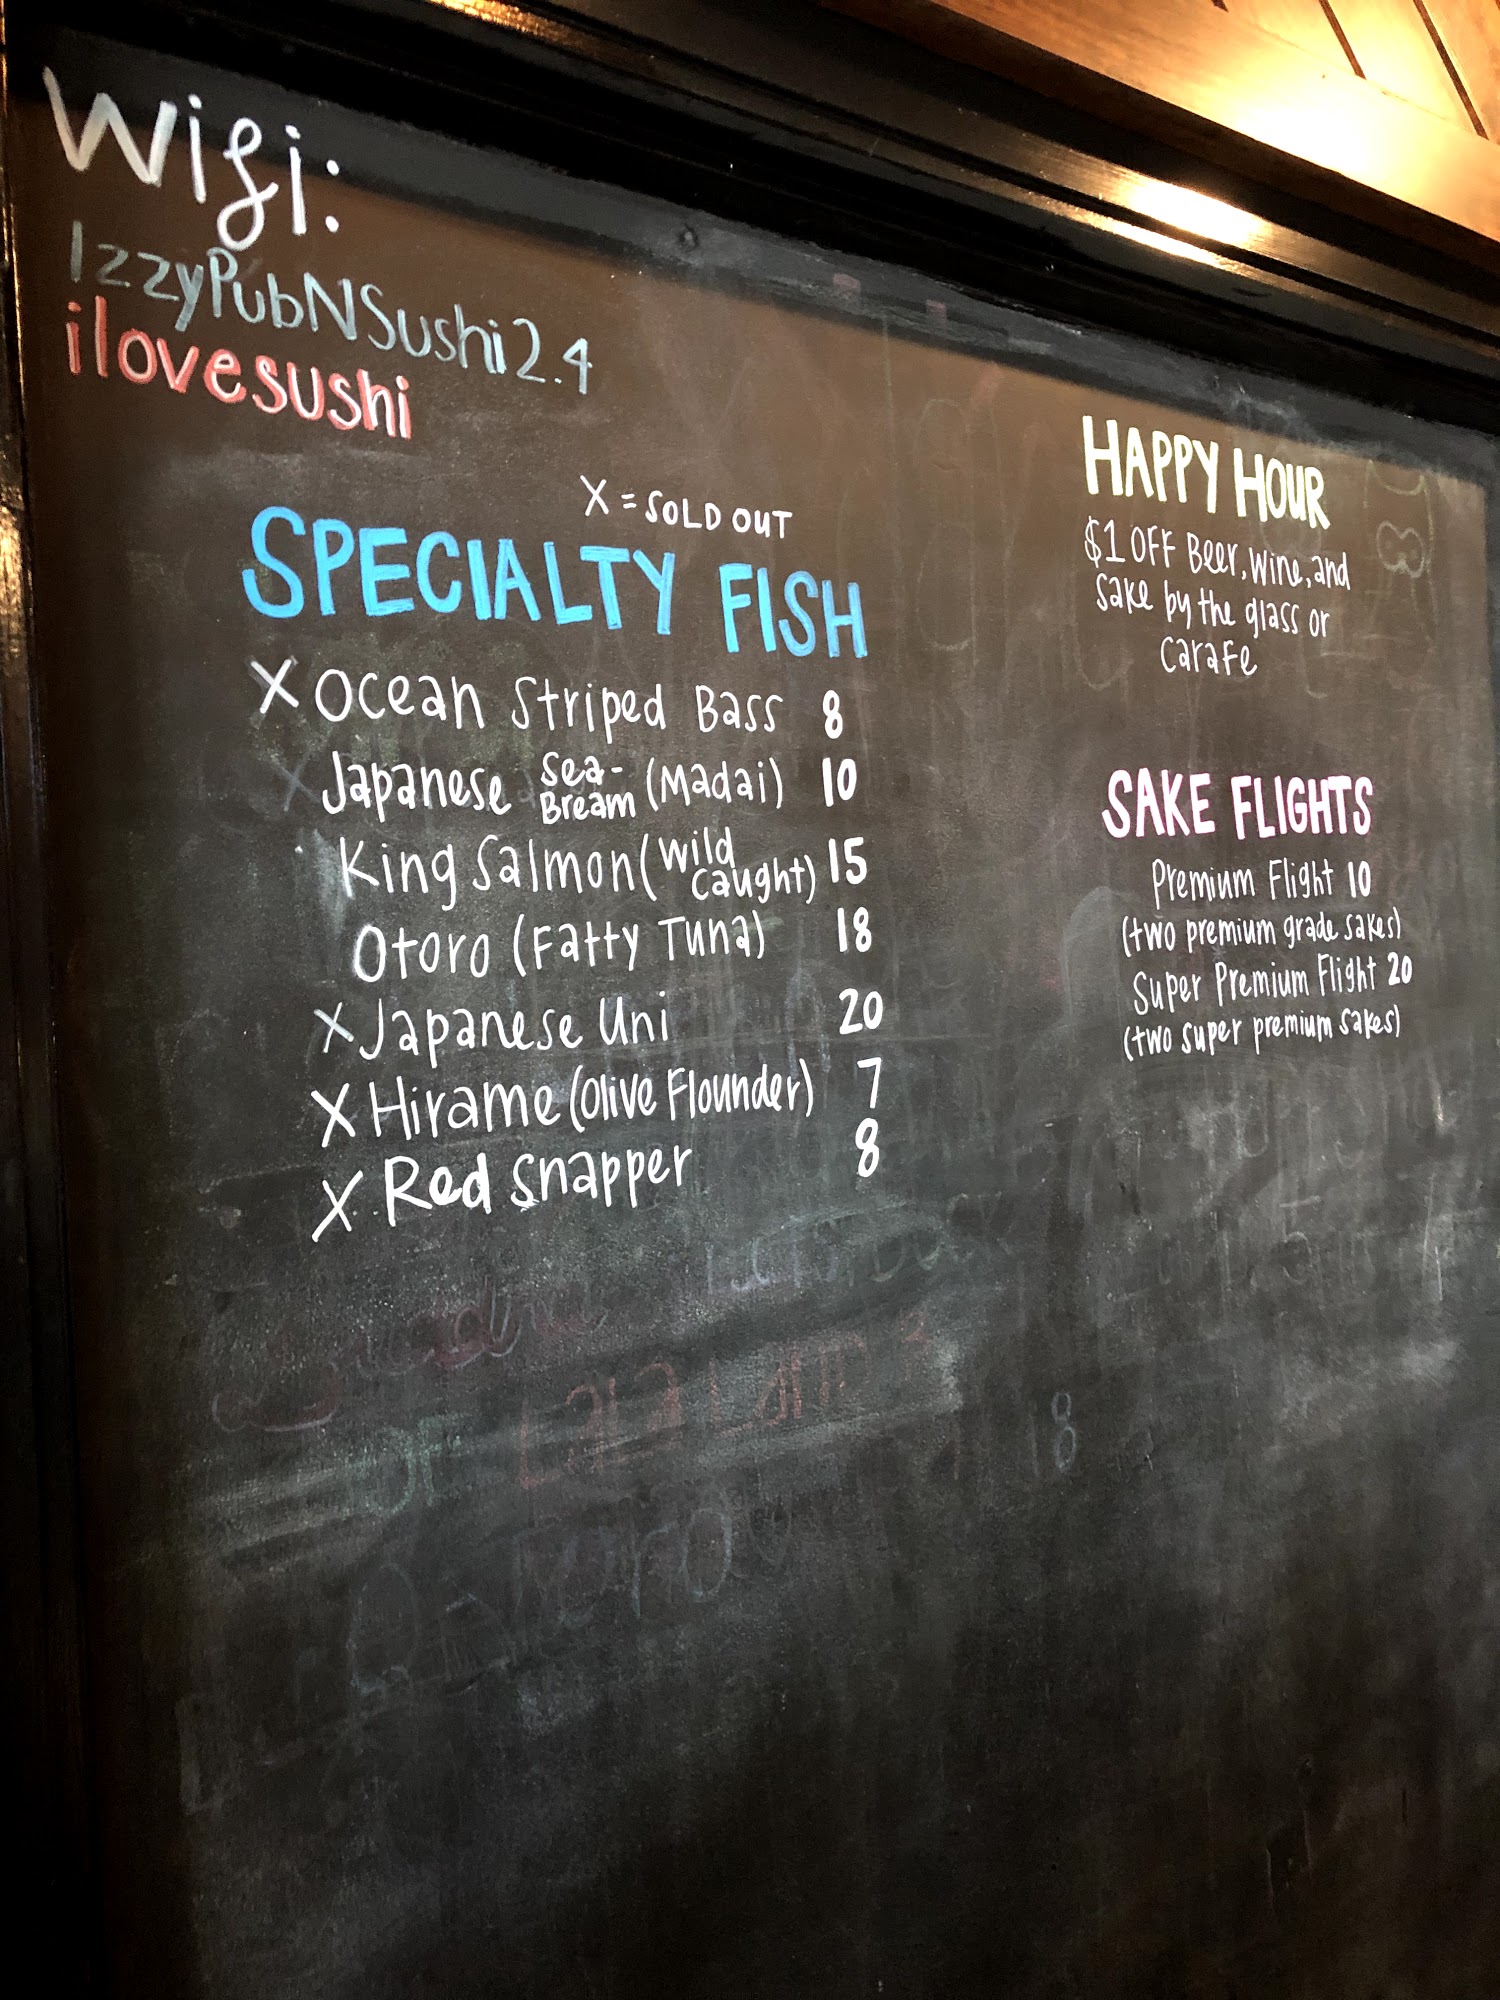 Wifi:
IzzyPubNSushi2.4
ilovesushi
X = SOLD OUT
SPECIALTY FISH
X Ocean Striped Bass 8
Japanese Sea-Bream (Madai) 10
King Salmon (Wild Caught) 15
Otoro (Fatty Tuna) 18
X Japanese Uni 20
X Hirame (Olive Flounder) 7
X Red Snapper 8
HAPPY HOUR
$1 OFF Beer, Wine, and
Sake by the glass or
Carafe
SAKE FLIGHTS
Premium Flight 10
(two premium grade sakes)
Super Premium Flight 20
(two super premium sakes)